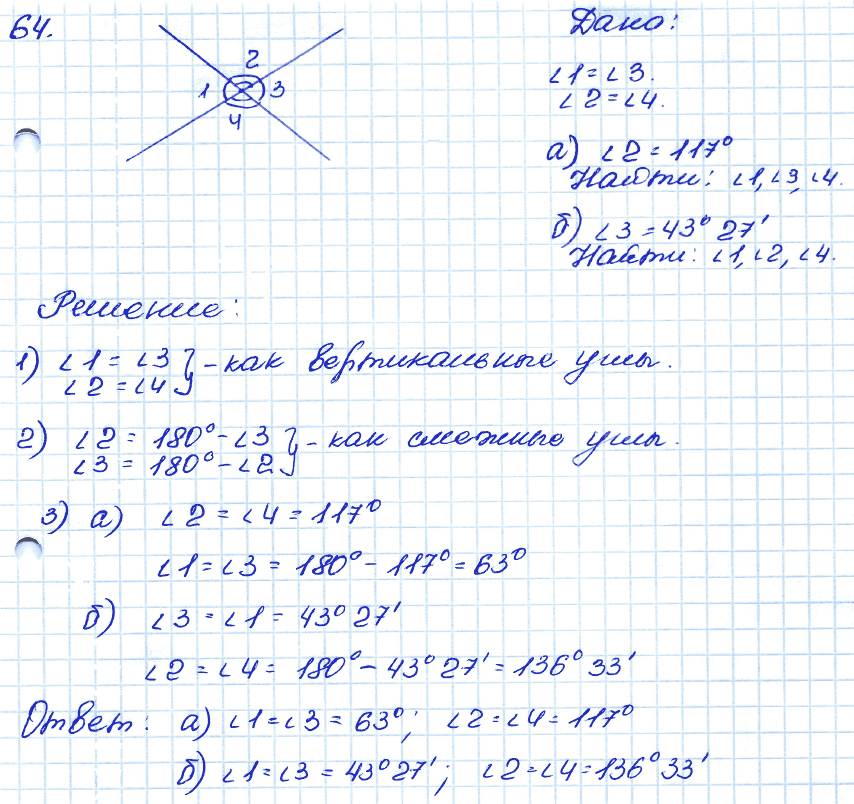 64.
2
1 3
4
Дано:
∠1 = ∠3.
∠2 = ∠4.
а) ∠2 = 117°
Найти: ∠1, ∠3, ∠4.
б) ∠3 = 43° 27'
Найти: ∠1, ∠2, ∠4.
Решение:
1) ∠1 = ∠3
∠2 = ∠4 } – как вертикальные углы.
2) ∠2 = 180° - ∠3
∠3 = 180° - ∠2 } – как смежные углы.
3) а) ∠2 = ∠4 = 117°
∠1 = ∠3 = 180° - 117° = 63°
б) ∠3 = ∠1 = 43° 27'
∠2 = ∠4 = 180° - 43° 27' = 136° 33'
Ответ: а) ∠1 = ∠3 = 63°; ∠2 = ∠4 = 117°
б) ∠1 = ∠3 = 43° 27'; ∠2 = ∠4 = 136° 33'